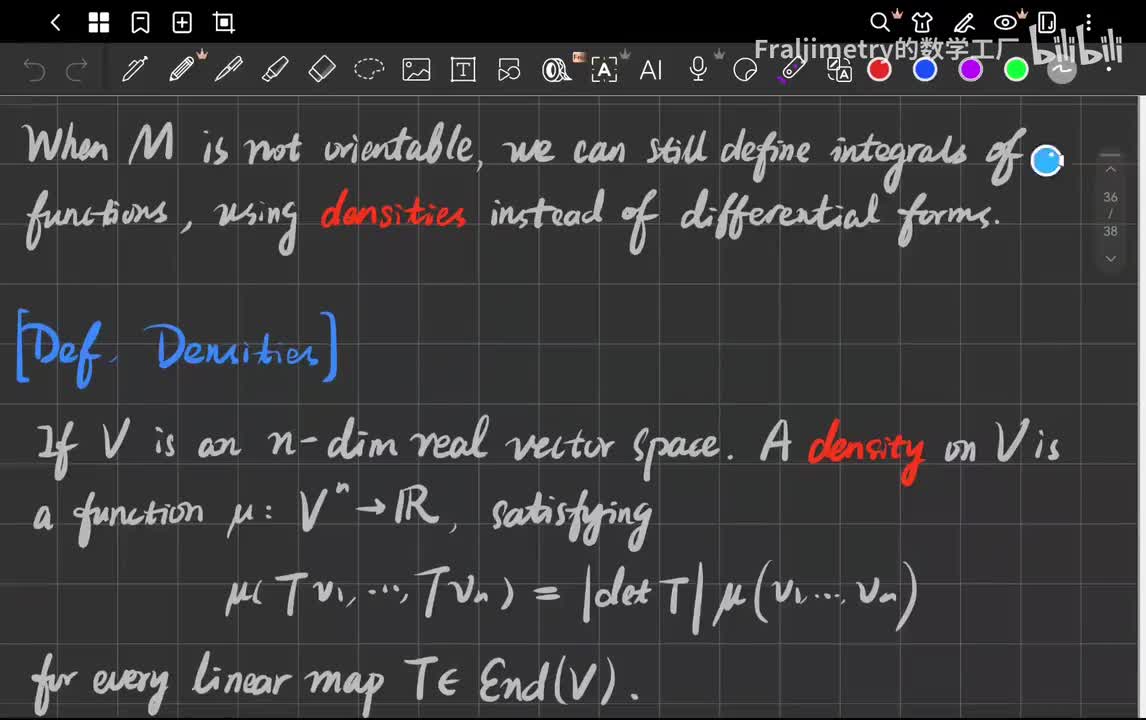 Fraljimetry的数学工厂 bilibili
AI
When M is not orientable, we can still define integrals of
functions, using densities instead of differential forms.
36
/
38
[Def. Densities]
If V is an n-dim real vector space. A density on V is
a function μ: Vⁿ → ℝ, satisfying
μ(Tv₁, ..., Tvₙ) = |det T| μ(v₁, ..., vₙ)
for every linear map T ∈ End(V).